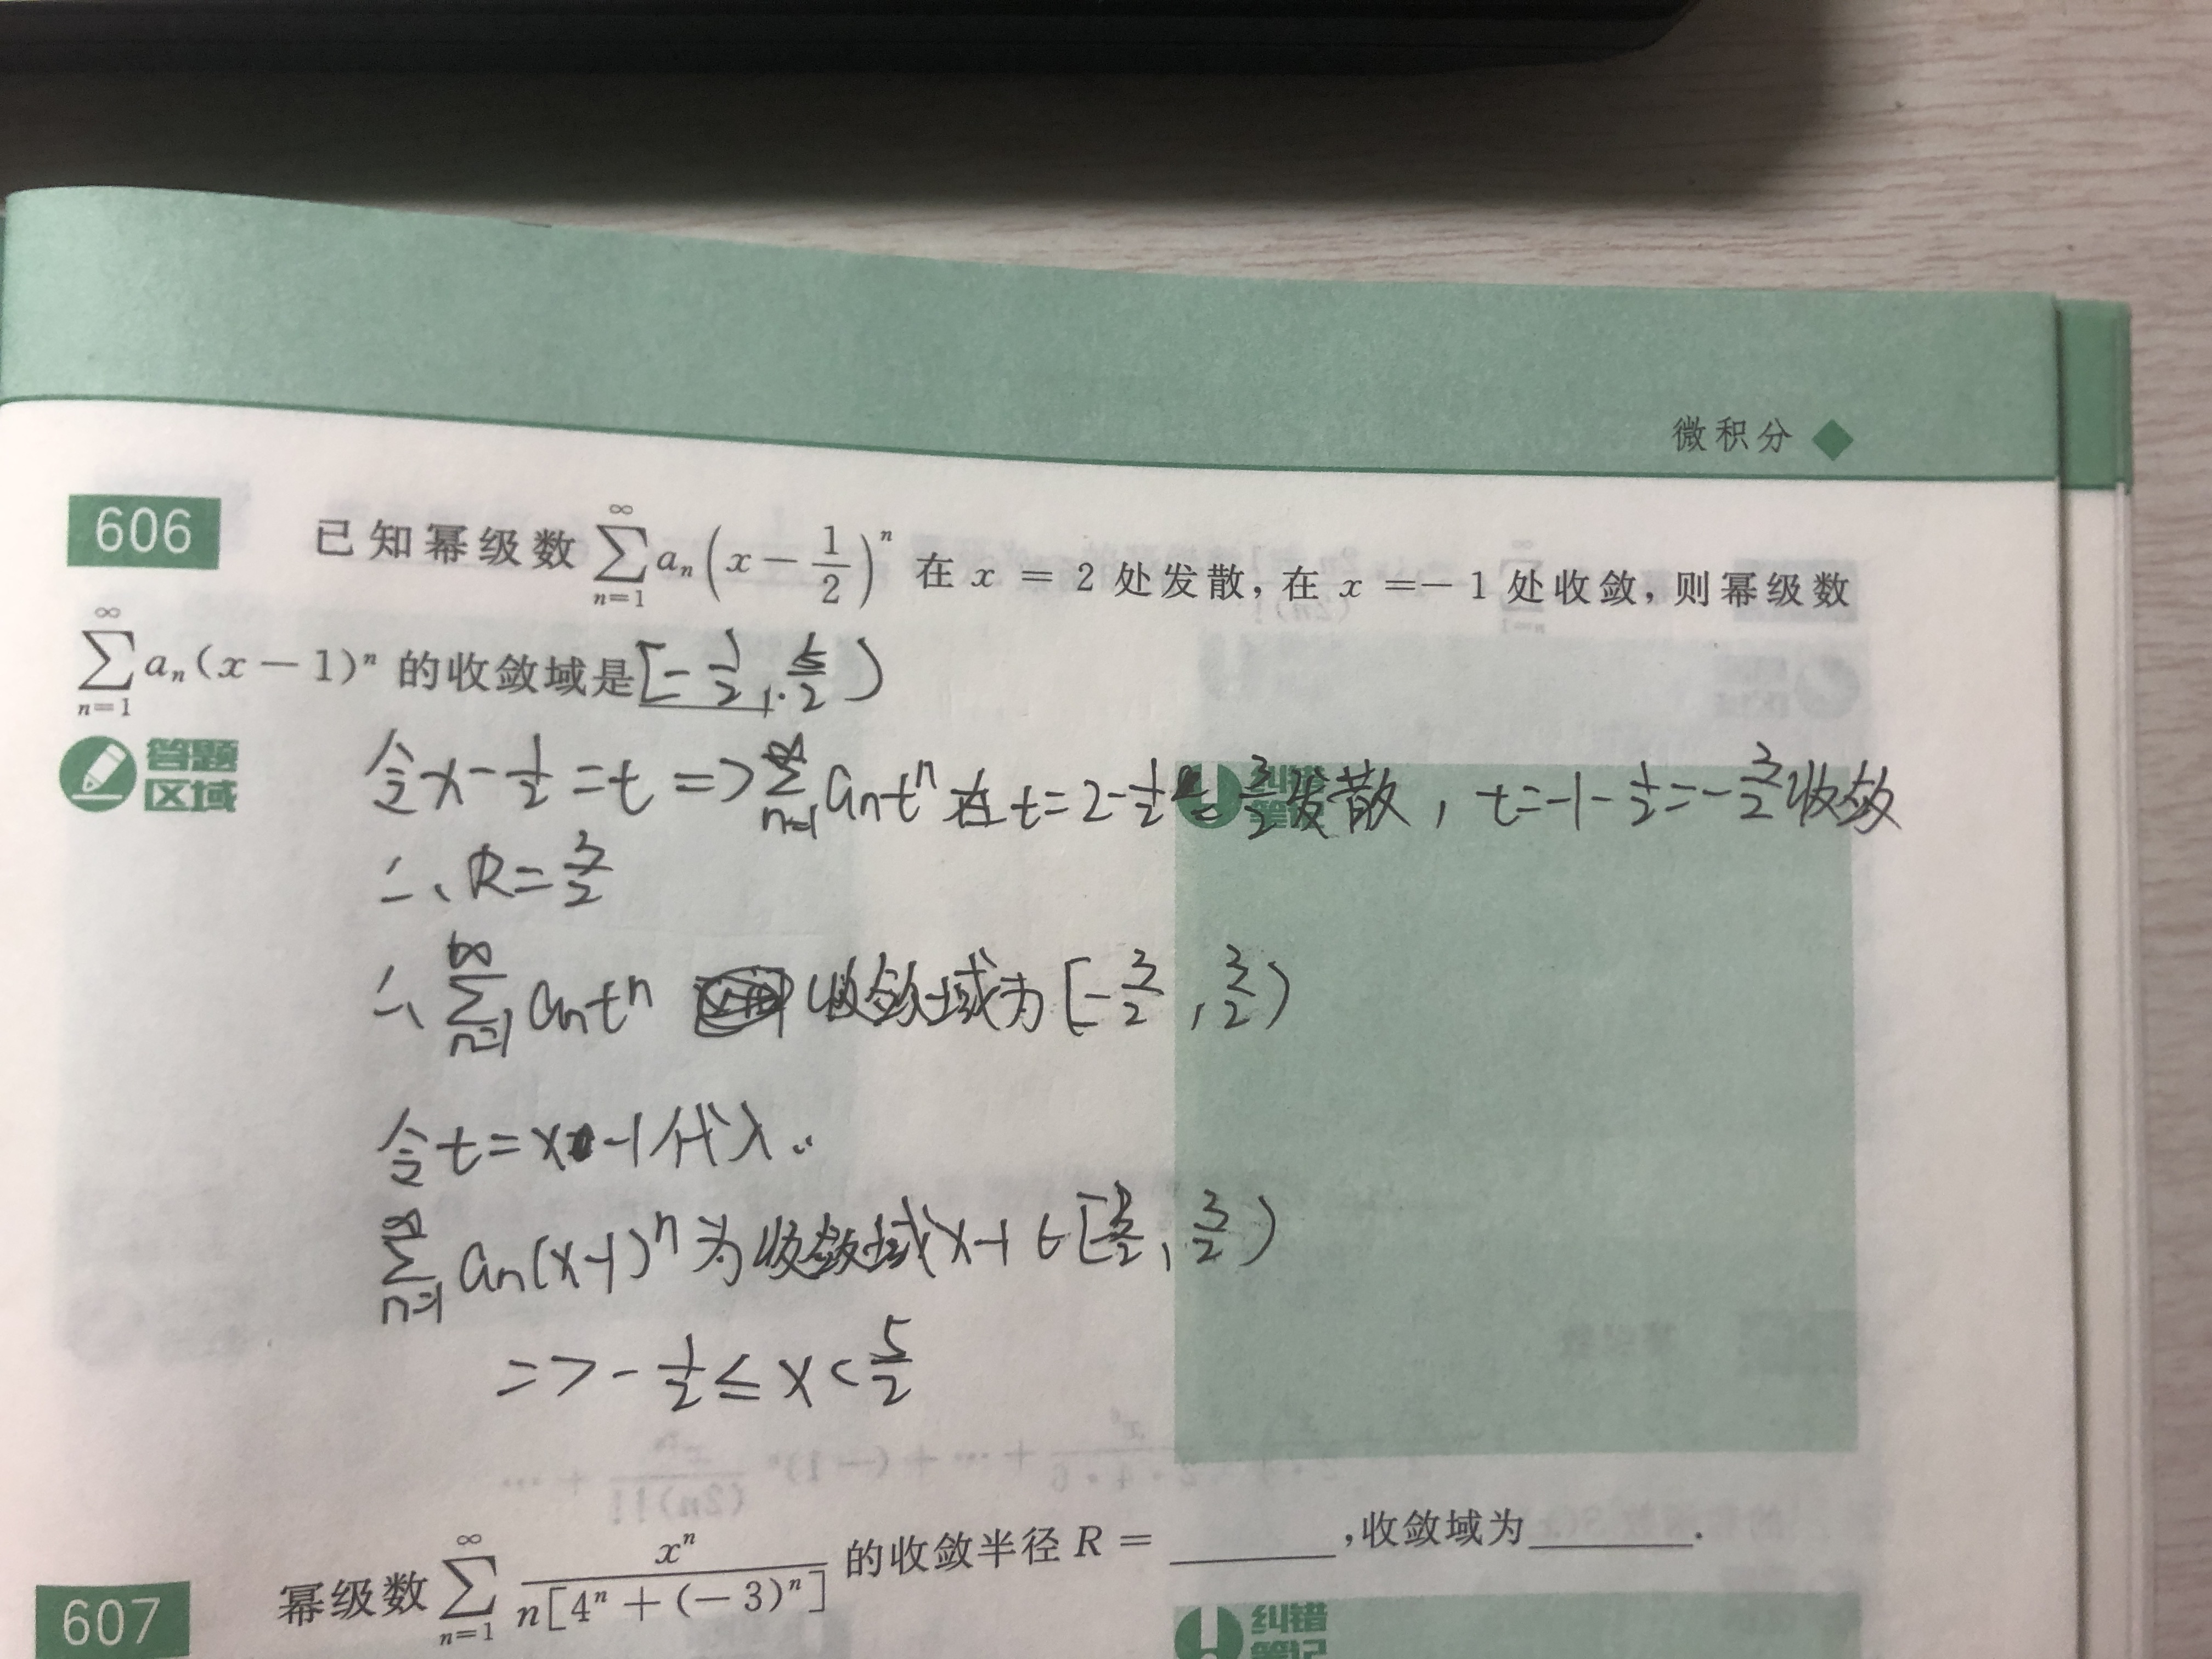 微积分 ◆
606 已知幂级数 $\sum_{n=1}^{\infty} a_n \left(x-\frac{1}{2}\right)^n$ 在 x = 2 处发散,在 x =- 1 处收敛,则幂级数
$\sum_{n=1}^{\infty} a_n (x-1)^n$ 的收敛域是 $[-\frac{1}{2}, \frac{5}{2})$
答题
区域
纠错
令 $x-\frac{1}{2}=t$ => $\sum_{n=1}^{\infty} a_n t^n$ 在 $t=2-\frac{1}{2}=\frac{3}{2}$ 发散, $t=-1-\frac{1}{2}=-\frac{3}{2}$ 收敛
∴ $R=\frac{3}{2}$
∴ $\sum_{n=1}^{\infty} a_n t^n$ 收敛域为 $[-\frac{3}{2}, \frac{3}{2})$
令 t=x-1代入..
$\sum_{n=1}^{\infty} a_n(x-1)^n$ 为收敛域 $x-1 \in [-\frac{3}{2}, \frac{3}{2})$
=> $-\frac{1}{2} \le x < \frac{5}{2}$
607 幂级数 $\sum_{n=1}^{\infty} \frac{x^n}{n[4^n+(-3)^n]}$ 的收敛半径 R = ______,收敛域为______.
纠错
笔记